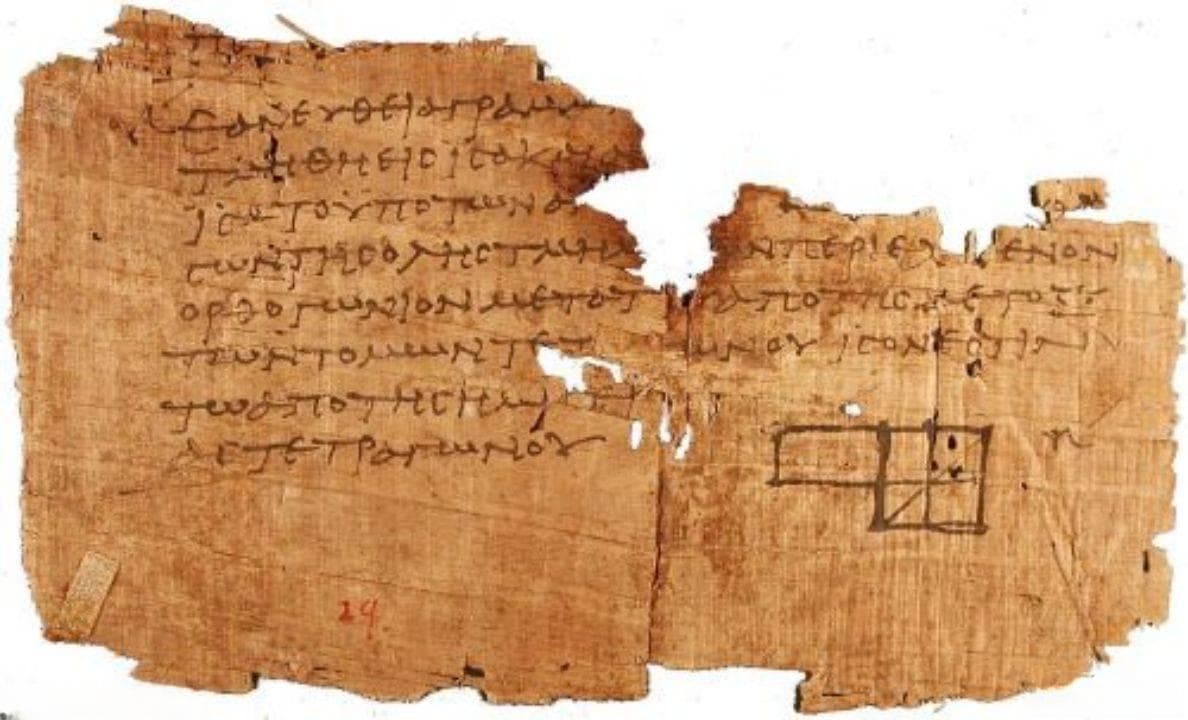 ΕΑΝ ΕΥΘΕΙΑ ΓΡΑΜΜ
ΤΜΗΘΗ ΕΙϹ ΙϹΑ ΚΑΙ ΑΝ
ΙϹΑ ΤΟ ΥΠΟ ΤΩΝ ΑΝ
ϹΩΝ ΤΗϹ ΟΛΗϹ ΤΜΗΜ ΩΝ ΠΕΡΙΕΧ ΕΝΟΝ
ΟΡΘΟΓΩΝΙΟΝ ΜΕΤΟ Τ ΑΠΟ ΤΗϹ ΜΕΤΟΞΥ
ΤΩΝ ΤΟΜΩΝ ΤΕΤ ΩΝΟΥ ΙϹΟΝ ΕϹΤΙΝ
ΤΩ ΑΠΟ ΤΗϹ ΗΜΙ
ΑϹ ΤΕΤΡΑΓΩΝΟΥ
29